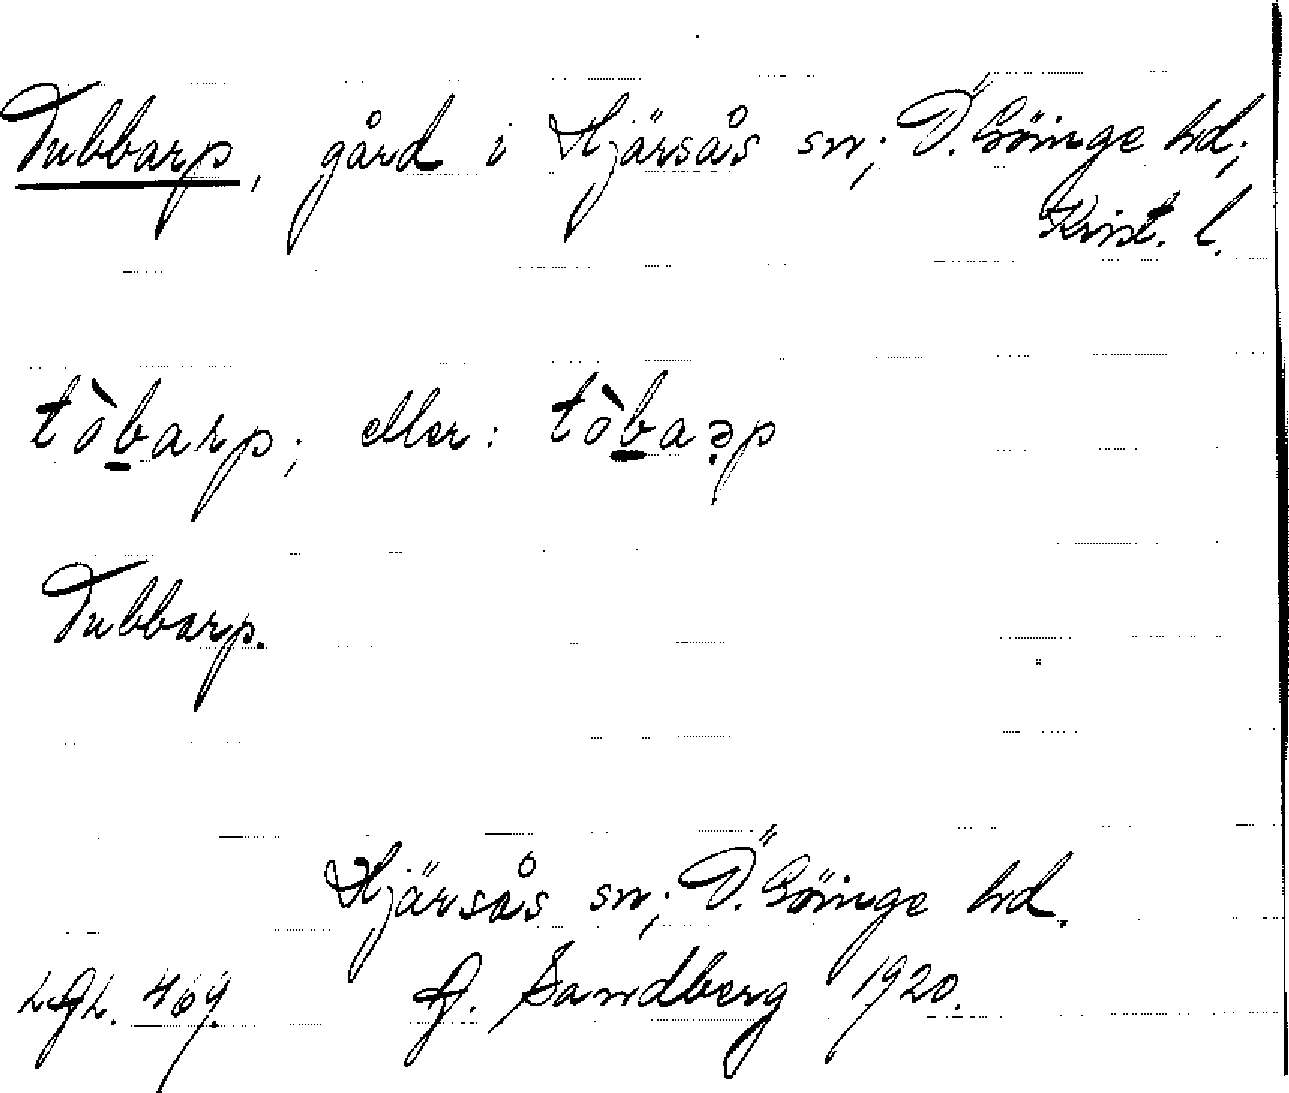 Tubbarp, gård i Hjärsås sn; Ö. Göinge hd;
Krist. l.
tòbarp; eller: tòbaə̣p
Tubbarp.
Hjärsås sn; Ö. Göinge hd.
LGL. 469. G. Sandberg 1920.